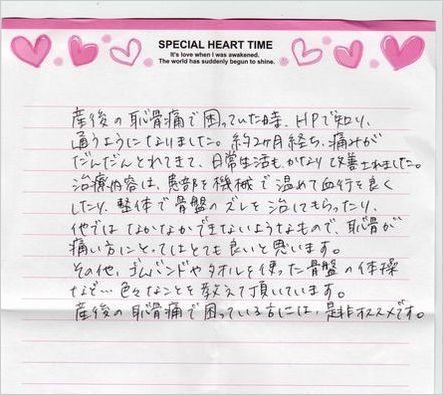 SPECIAL HEART TIME
It's love when I was awakened.
The world has suddenly begun to shine.
産後の恥骨痛で困っていた時、HPで知り、
通うようになりました。約2ヶ月経ち、痛みが
だんだんとれてきて、日常生活もかなり改善されました。
治療内容は、患部を機械で温めて血行を良く
したり、整体で骨盤のズレを治してもらったり、
他ではなかなかできないようなもので、恥骨が
痛い方にとってはとても良いと思います。
その他、ゴムバンドやタオルを使った骨盤の体操
など…色々なことを教えて頂いています。
産後の恥骨痛で困っている方には、是非オススメです。